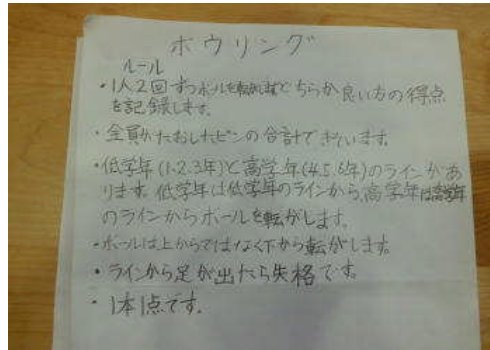 ボウリング
ルール
・1人2回ずつボールを転がしますどちらか良い方の得点
を記録します。
・全員がたおしたピンの合計できそいます。
・低学年(1.2.3年)と高学年(4.5.6年)のラインがあ
ります。低学年は低学年のラインから、高学年は高学年
のラインからボールを転がします。
・ボールは上からではなく下から転がします。
・ラインから足が出たら失格です。
・1本1点です。